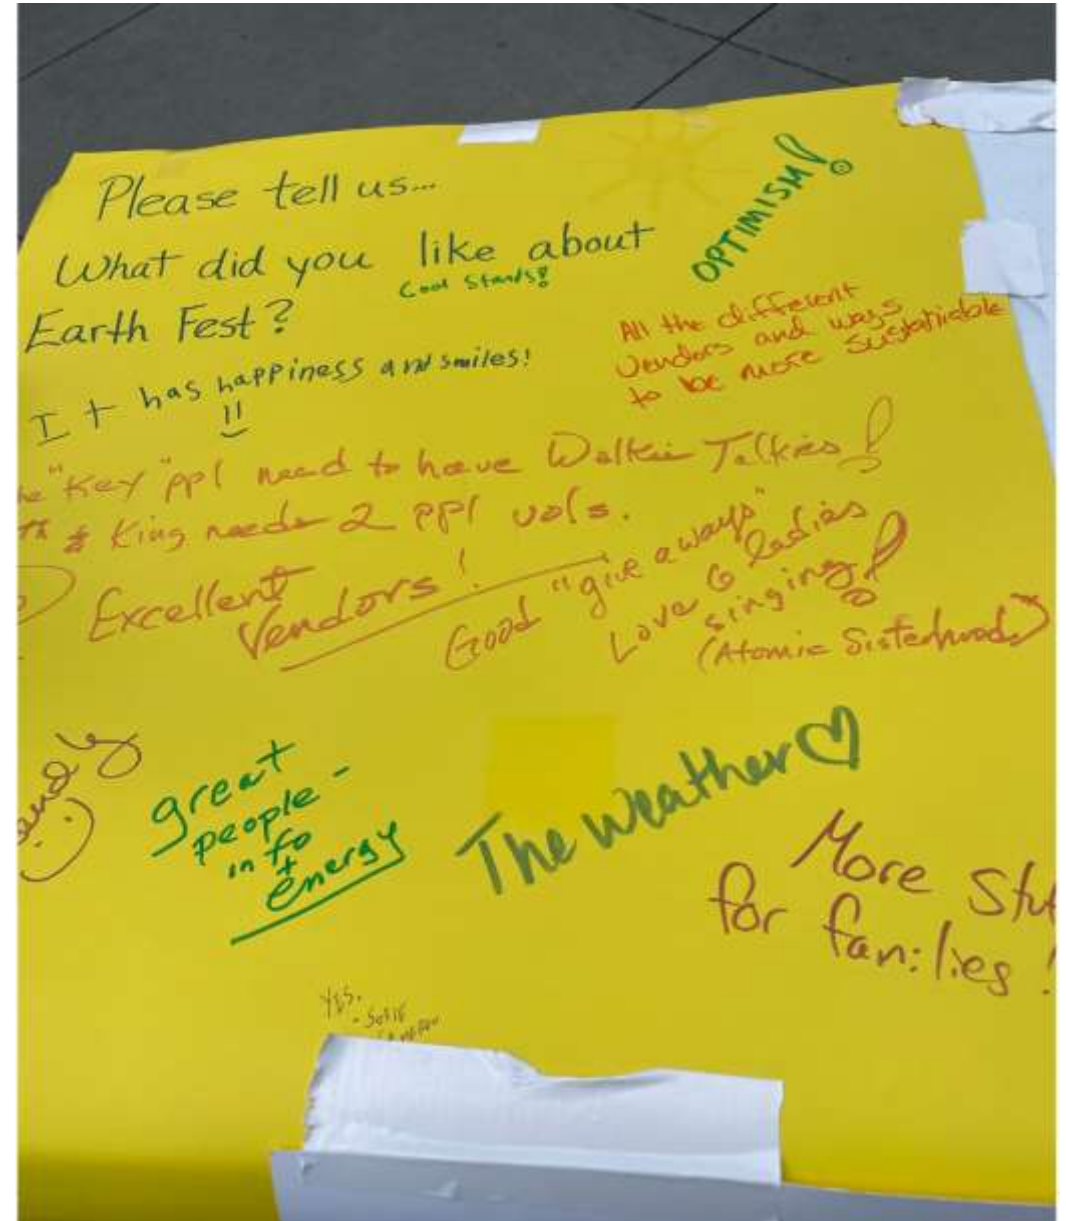 Please tell us...
What did you like about
Earth Fest?
Cool Stands!
OPTIMISM!
All the different
vendors and ways
to be more sustainable
It has happiness and smiles!
"Key" ppl need to have Walkie Talkies!
King needs 2 ppl vols.
Excellent
Vendors!
Good "give aways"
Love 6 ladies
singing!
(Atomic Sisterhood)
great
people -
info
+
energy
The weather♡
More Stu
for families!
YES.